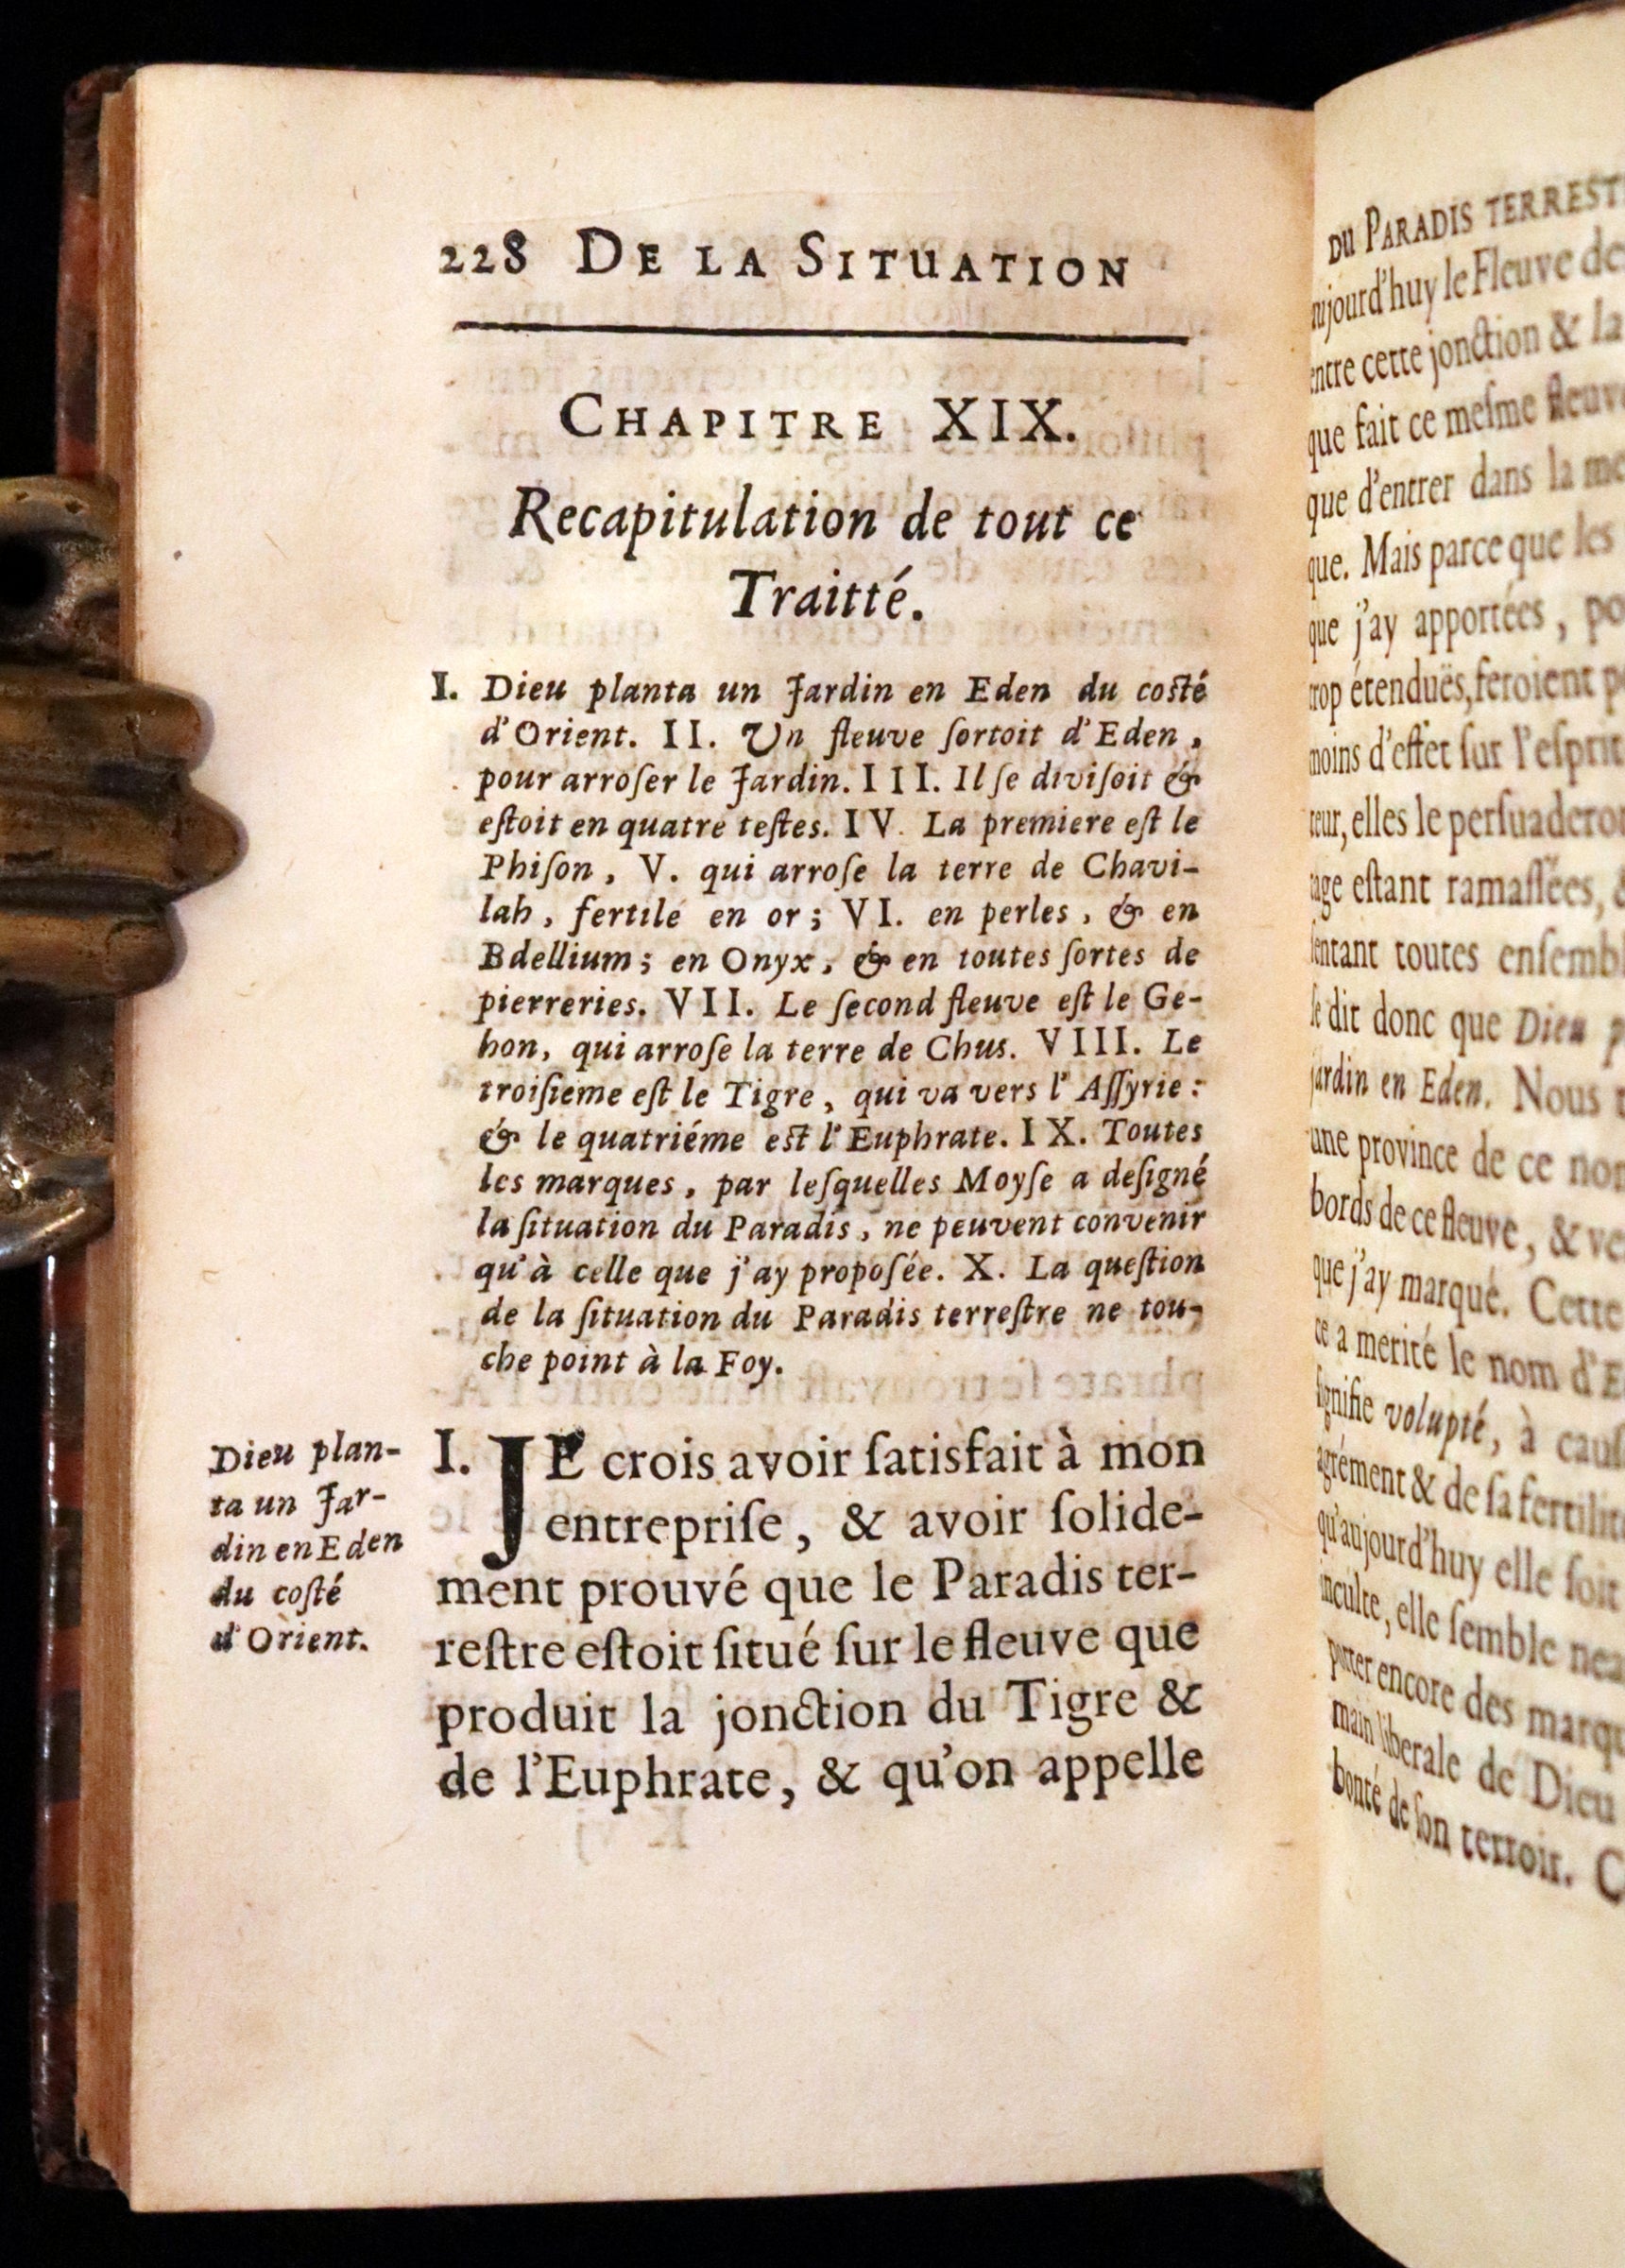 228 DE LA SITUATION
CHAPITRE XIX.
Recapitulation de tout ce
Traitté.
I. Dieu planta un Jardin en Eden du coſté
d'Orient. II. Un fleuve ſortoit d'Eden,
pour arroſer le Jardin. III. Il ſe diviſoit &
eſtoit en quatre teſtes. IV. La premiere eſt le
Phiſon, V. qui arroſe la terre de Chavi-
lah, fertile en or; VI. en perles, & en
Bdellium; en Onyx, & en toutes ſortes de
pierreries. VII. Le ſecond fleuve eſt le Ge-
hon, qui arroſe la terre de Chus. VIII. Le
troiſieme eſt le Tigre, qui va vers l'Aſſyrie:
& le quatriéme eſt l'Euphrate. IX. Toutes
les marques, par leſquelles Moyſe a deſigné
la ſituation du Paradis, ne peuvent convenir
qu'à celle que j'ay propoſée. X. La queſtion
de la ſituation du Paradis terreſtre ne tou-
che point à la Foy.
Dieu plan-
ta un Jar-
din en Eden
du coſté
d'Orient.
I. JE crois avoir ſatisfait à mon
entrepriſe, & avoir ſolide-
ment prouvé que le Paradis ter-
reſtre eſtoit ſitué ſur le fleuve que
produit la jonction du Tigre &
de l'Euphrate, & qu'on appelle
DU PARADIS
le Fleuve de
cette jonction & la
que fait ce meſme
que d'entrer dans la
que. Mais parce que les
que j'ay apportées,
étenduës, feroient
d'effet ſur l'eſprit
elles le
eſtant ramaſſées,
toutes
dit donc que Dieu
en Eden. Nous
une province de ce
bords de ce fleuve, &
que j'ay marqué. Cette
a merité le nom
volupté, à
& de ſa
qu'aujourd'huy elle ſoit
inculte, elle ſemble
encore des
main liberale de Dieu
bonté de ſon terroir.